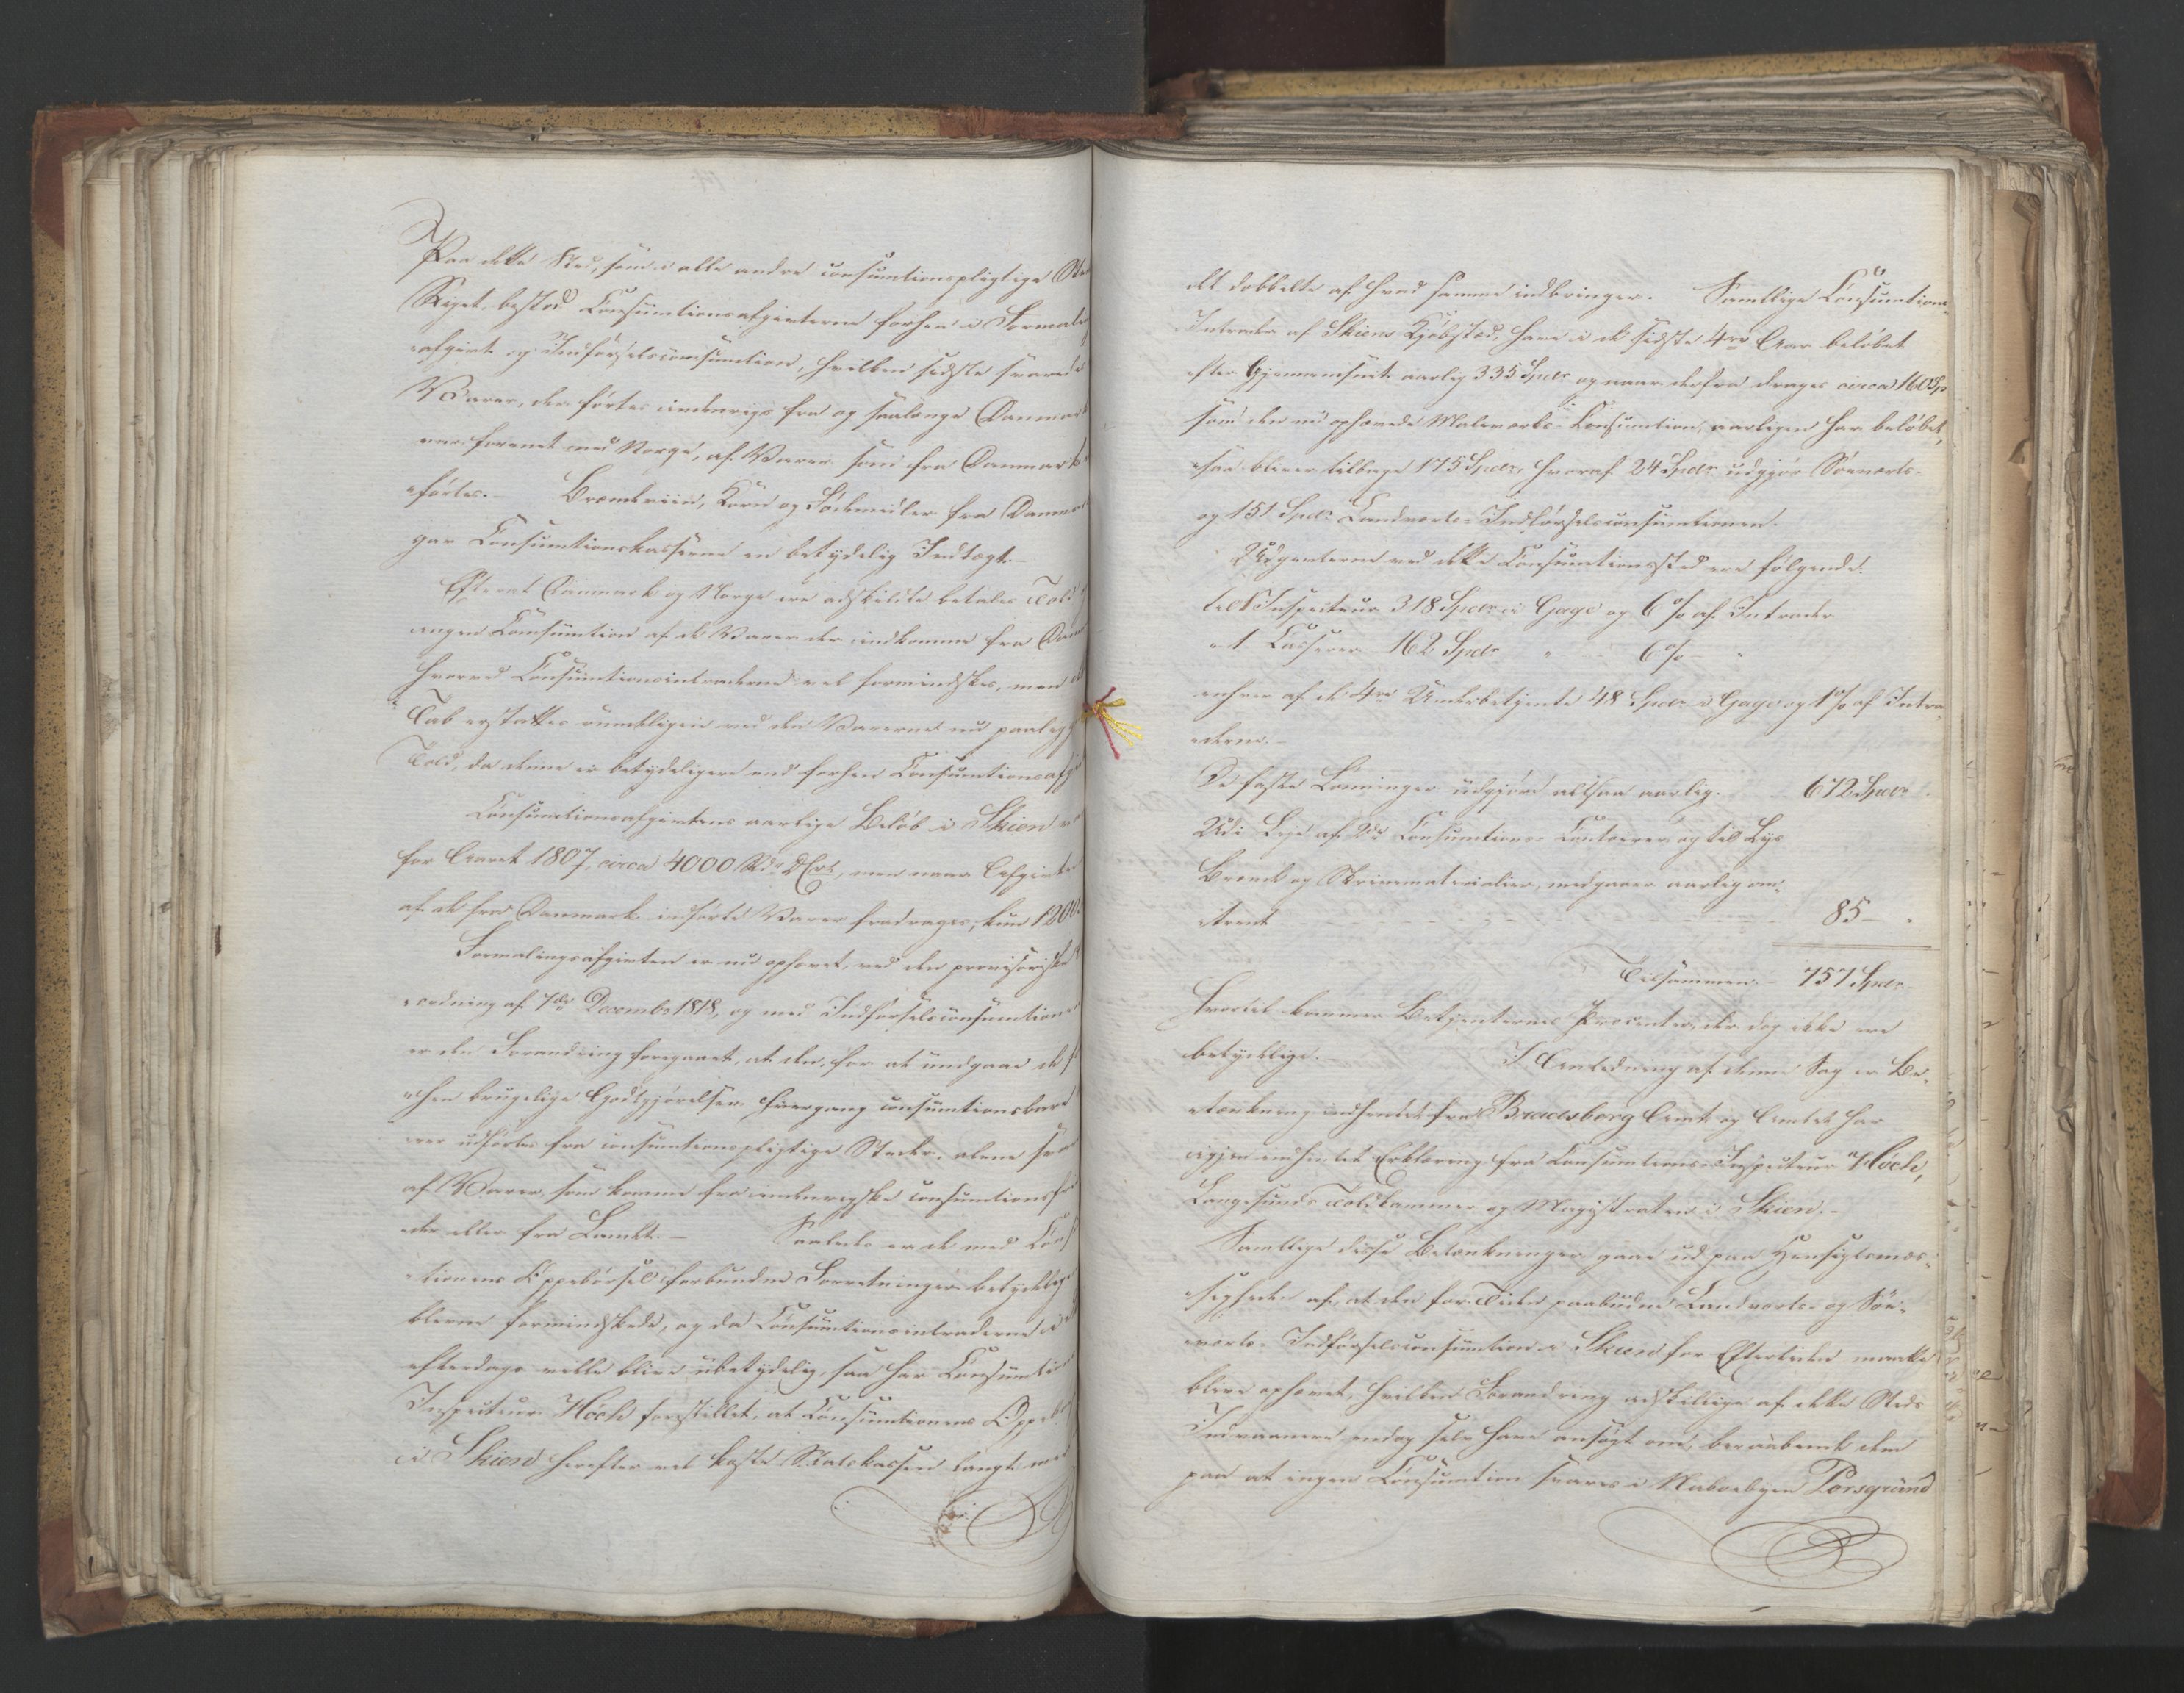 Paa dette Sted, som i alle andre consumtionspligtige
Riget bestod Consumtionsafgivterne forhen i Formalings
afgivt og Indførselsconsumtion, hvilken sidste svaredes
Varer, der førtes indenrigs fra og saalænge Danmark
var forenet med Norge, af Varer som fra Danmark
førtes. Brændeviin, Korn og Fødemidler fra Danmark
gav Consumtionskasserne en betydelig Indtægt.
Efterat Danmark og Norge ere adskildte betales Told
ingen Consumtion af de Varer der indkomme fra
hvorved Consumtionsintraderne vel formindskes, men
Tab erstattes rundeligen ved den Varerne nu paalagte
Told, da denne er betydeligere end forhen Consumtionsafgivten
Consumtionsafgivtens aarlige Beløb i Skien
for Aaret 1807 circa 4000 Rd. DCrt, men naar Afgivten
af de fra Danmark indførte Varer fradrages, kun 1200
Formalingsafgivten er nu ophævet, ved den provisoriske
ordning af 7de Decembr 1818, og med Indførselsconsumtionen
er den Forandring foregaaet, at den, for at undgaae de
hen brugelige Godtgjørelser hvergang consumtionsbare
rer udførtes fra consumtionspligtige Steder, alene
af Varer som komme fra indenrigske consumtionsfrie
der eller fra Landet. Saaledes er de med
tionens Oppebørsel forbundne Forretninger betydeligt
blevne formindskede, og da Consumtionsintraderne
efterdags ville blive ubetydelig, saa har Consumtions
Inspecteur Höeh forestillet, at Consumtionens
i Skien herefter vil koste Statskassen langt
det dobbelte af hvad samme indbringer. Samtlige Consumtions
Intrader af Skiens Kjøbstæd, have i de sidste 4re Aar beløbet
efter Gjennemsnit aarlig 335 Spdr og naar derfra drages circa 160 Sp
som den nu ophævede Maleværks-Consumtion aarligen har beløbet,
saa bliver tilbage 175 Spdr, hvoraf 24 Spdr udgjør Søeværts-
og 151 Spdr Landværts-Indførselsconsumtionen.
Udgivterne ved dette Consumtionssted ere følgende:
til 1 Inspecteur 318 Spdr i Gage og 6 % af Intrader
" 1 Casserer 162 Spdr " 6 % "
enhver af de 4re Underbetjente 48 Spdr i Gage og 1 % af Intra
derne.
De faste Lønninger udgjøre altsaa aarlig. 672 Spdr
Udi Leje af 2de Consumtions-Contoirer og til Lys
Brænde og Skrivematerialier, medgaaer aarlig om-
trent 85 —
Tilsammen 757 Spdr
Hvortil kommer Betjenternes Procenter, der dog ikke ere
betydelige. I Anledning af denne Sag er Be-
tænkning indhentet fra Bradsberg Amt og Amtet har
igjen indhentet Erklæring fra Consumtions-Inspecteur Höeh,
Langesunds Toldkammer og Magistraten i Skien.
Samtlige disse Betænkninger gaae ud paa Hensigtsmæs-
sigheden af, at den for Tiden paabudne Landværts- og Søe-
værts-Indførselsconsumtion i Skien for Eftertiden maatte
blive ophævet, hvilken Forandring adskillige af dette Steds
Indvaanere endog selv have ansøgt om, beraabende dem
paa at ingen Consumtion svares i Naboebyen Porsgrund